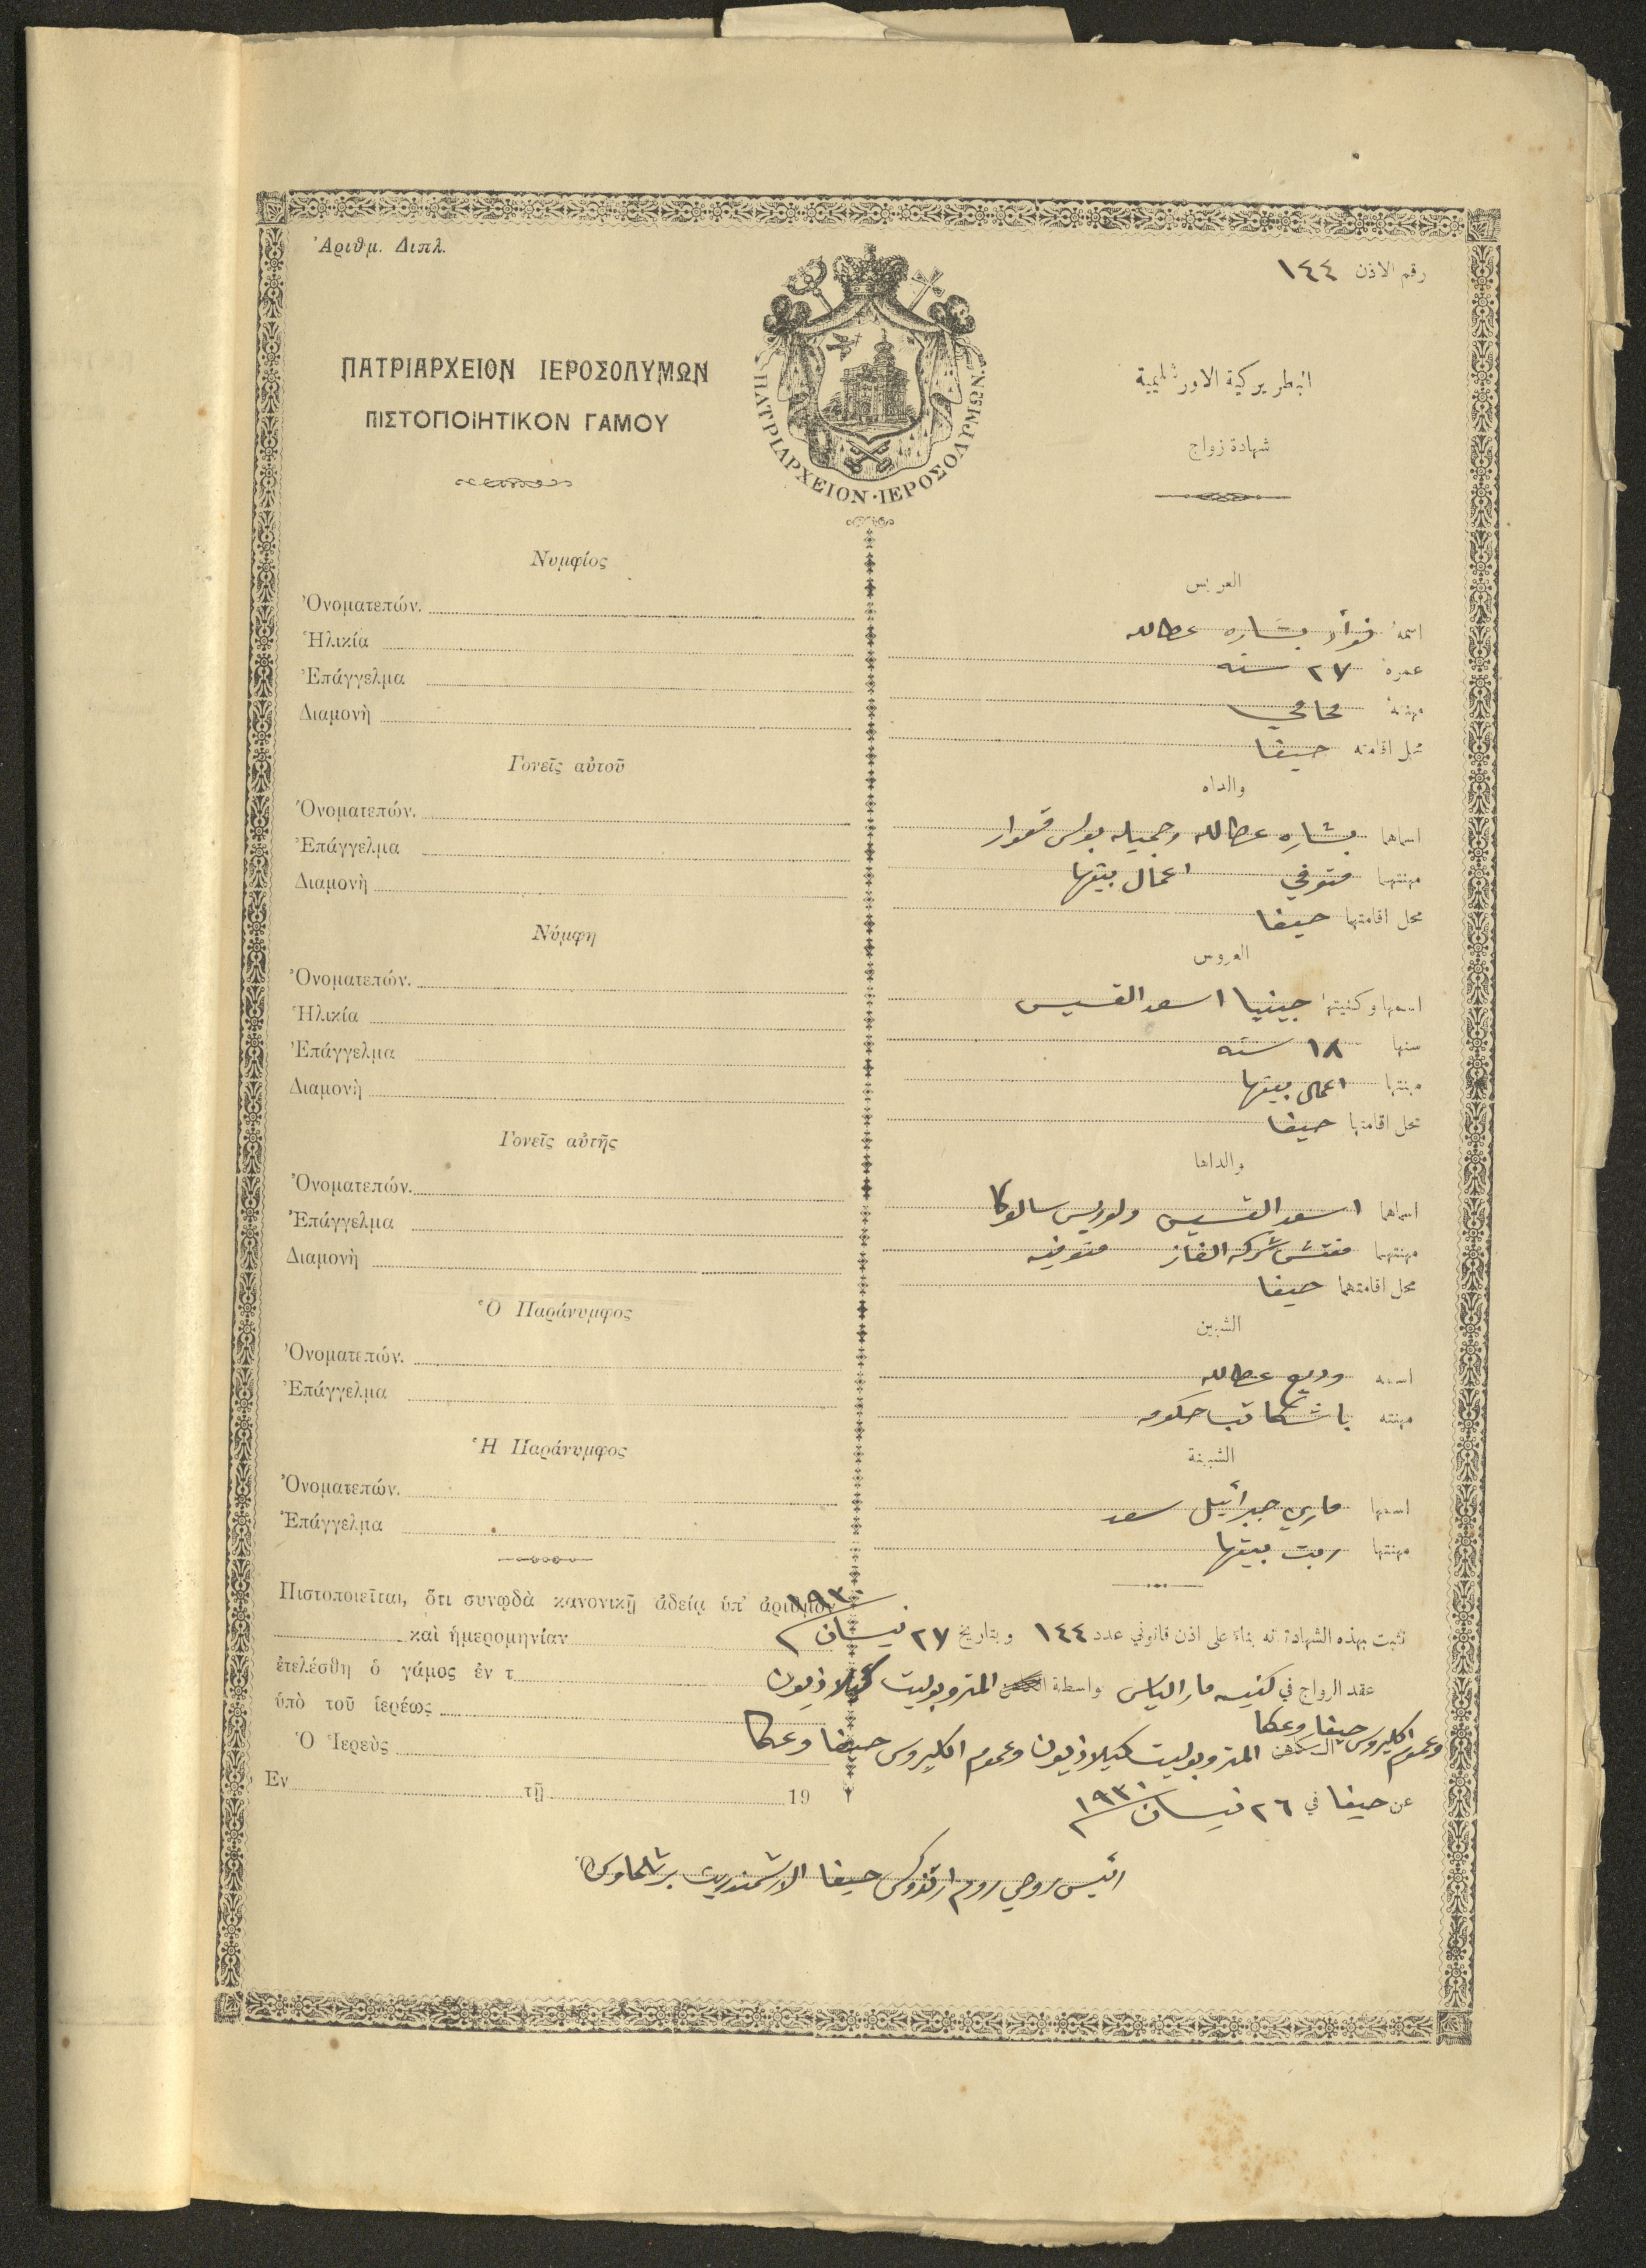 Ἀριθμ. Διπλ.
رقم الاذن ١٤٤
ΠΑΤΡΙΑΡΧΕΙΟΝ ΙΕΡΟΣΟΛΥΜΩΝ
ΠΙΣΤΟΠΟΙΗΤΙΚΟΝ ΓΑΜΟΥ
ΠΑΤΡΙΑΡΧΕΙΟΝ·ΙΕΡΟΣΟΛΥΜΩΝ
البطريركية الاورشليمية
شهادة زواج
Νυμφίος
Ὀνοματεπών.
Ἡλικία
Ἐπάγγελμα
Διαμονὴ
Γονεῖς αὐτοῦ
Ὀνοματεπών.
Ἐπάγγελμα
Διαμονὴ
Νύμφη
Ὀνοματεπών.
Ἡλικία
Ἐπάγγελμα
Διαμονὴ
Γονεῖς αὐτῆς
Ὀνοματεπών.
Ἐπάγγελμα
Διαμονὴ
Ὁ Παράνυμφος
Ὀνοματεπών.
Ἐπάγγελμα
Ἡ Παράνυμφος
Ὀνοματεπών.
Ἐπάγγελμα
Πιστοποιεῖται, ὅτι συνῳδὰ κανονικῇ ἀδείᾳ ὑπ' ἀριθμὸν
καὶ ἡμερομηνίαν
ἐτελέσθη ὁ γάμος ἐν τ
ὑπὸ τοῦ ἱερέως
Ὁ Ἱερεὺς
Ἐν τῇ 19
العريس
اسمه فؤاد بشاره عطالله
عمره ٢٧ سنه
مهنته محامي
محل اقامته حيفا
والداه
اسماهما بشاره عطالله وجميله بولس قعوار
مهنتهما متوفي اعمال بيتها
محل اقامتهما حيفا
العروس
اسمها وكنيتها جينيا اسعد القسيس
سنها ١٨ سنه
مهنتها اعمال بيتها
محل اقامتها حيفا
والداها
اسماهما اسعد القسيس ولوريس سالوكا
مهنتهما مفتش شركه الغاز متوفيه
محل اقامتهما حيفا
الشبين
اسمه وديع عطالله
مهنته باشكاتب حكومه
الشبينة
اسمها ماري جبرائيل سعد
مهنتها ربت بيتها
تثبت بهذه الشهادة انه بناءً على اذن قانوني عدد ١٤٤ وبتاريخ ٢٧ نيسان ١٩٣٠
عقد الزواج في كنيسه مار الياس واسطة المتروبوليت كيلاذيون
وعموم اكليروس حيفا وعكا
المتروبوليت كيلاذيون وعموم اكليروس حيفا وعكا
عن حيفا في ٢٦ نيسان ١٩٣٠
الرئيس روحي روم ارثوذوكس حيفا الارشمندريت